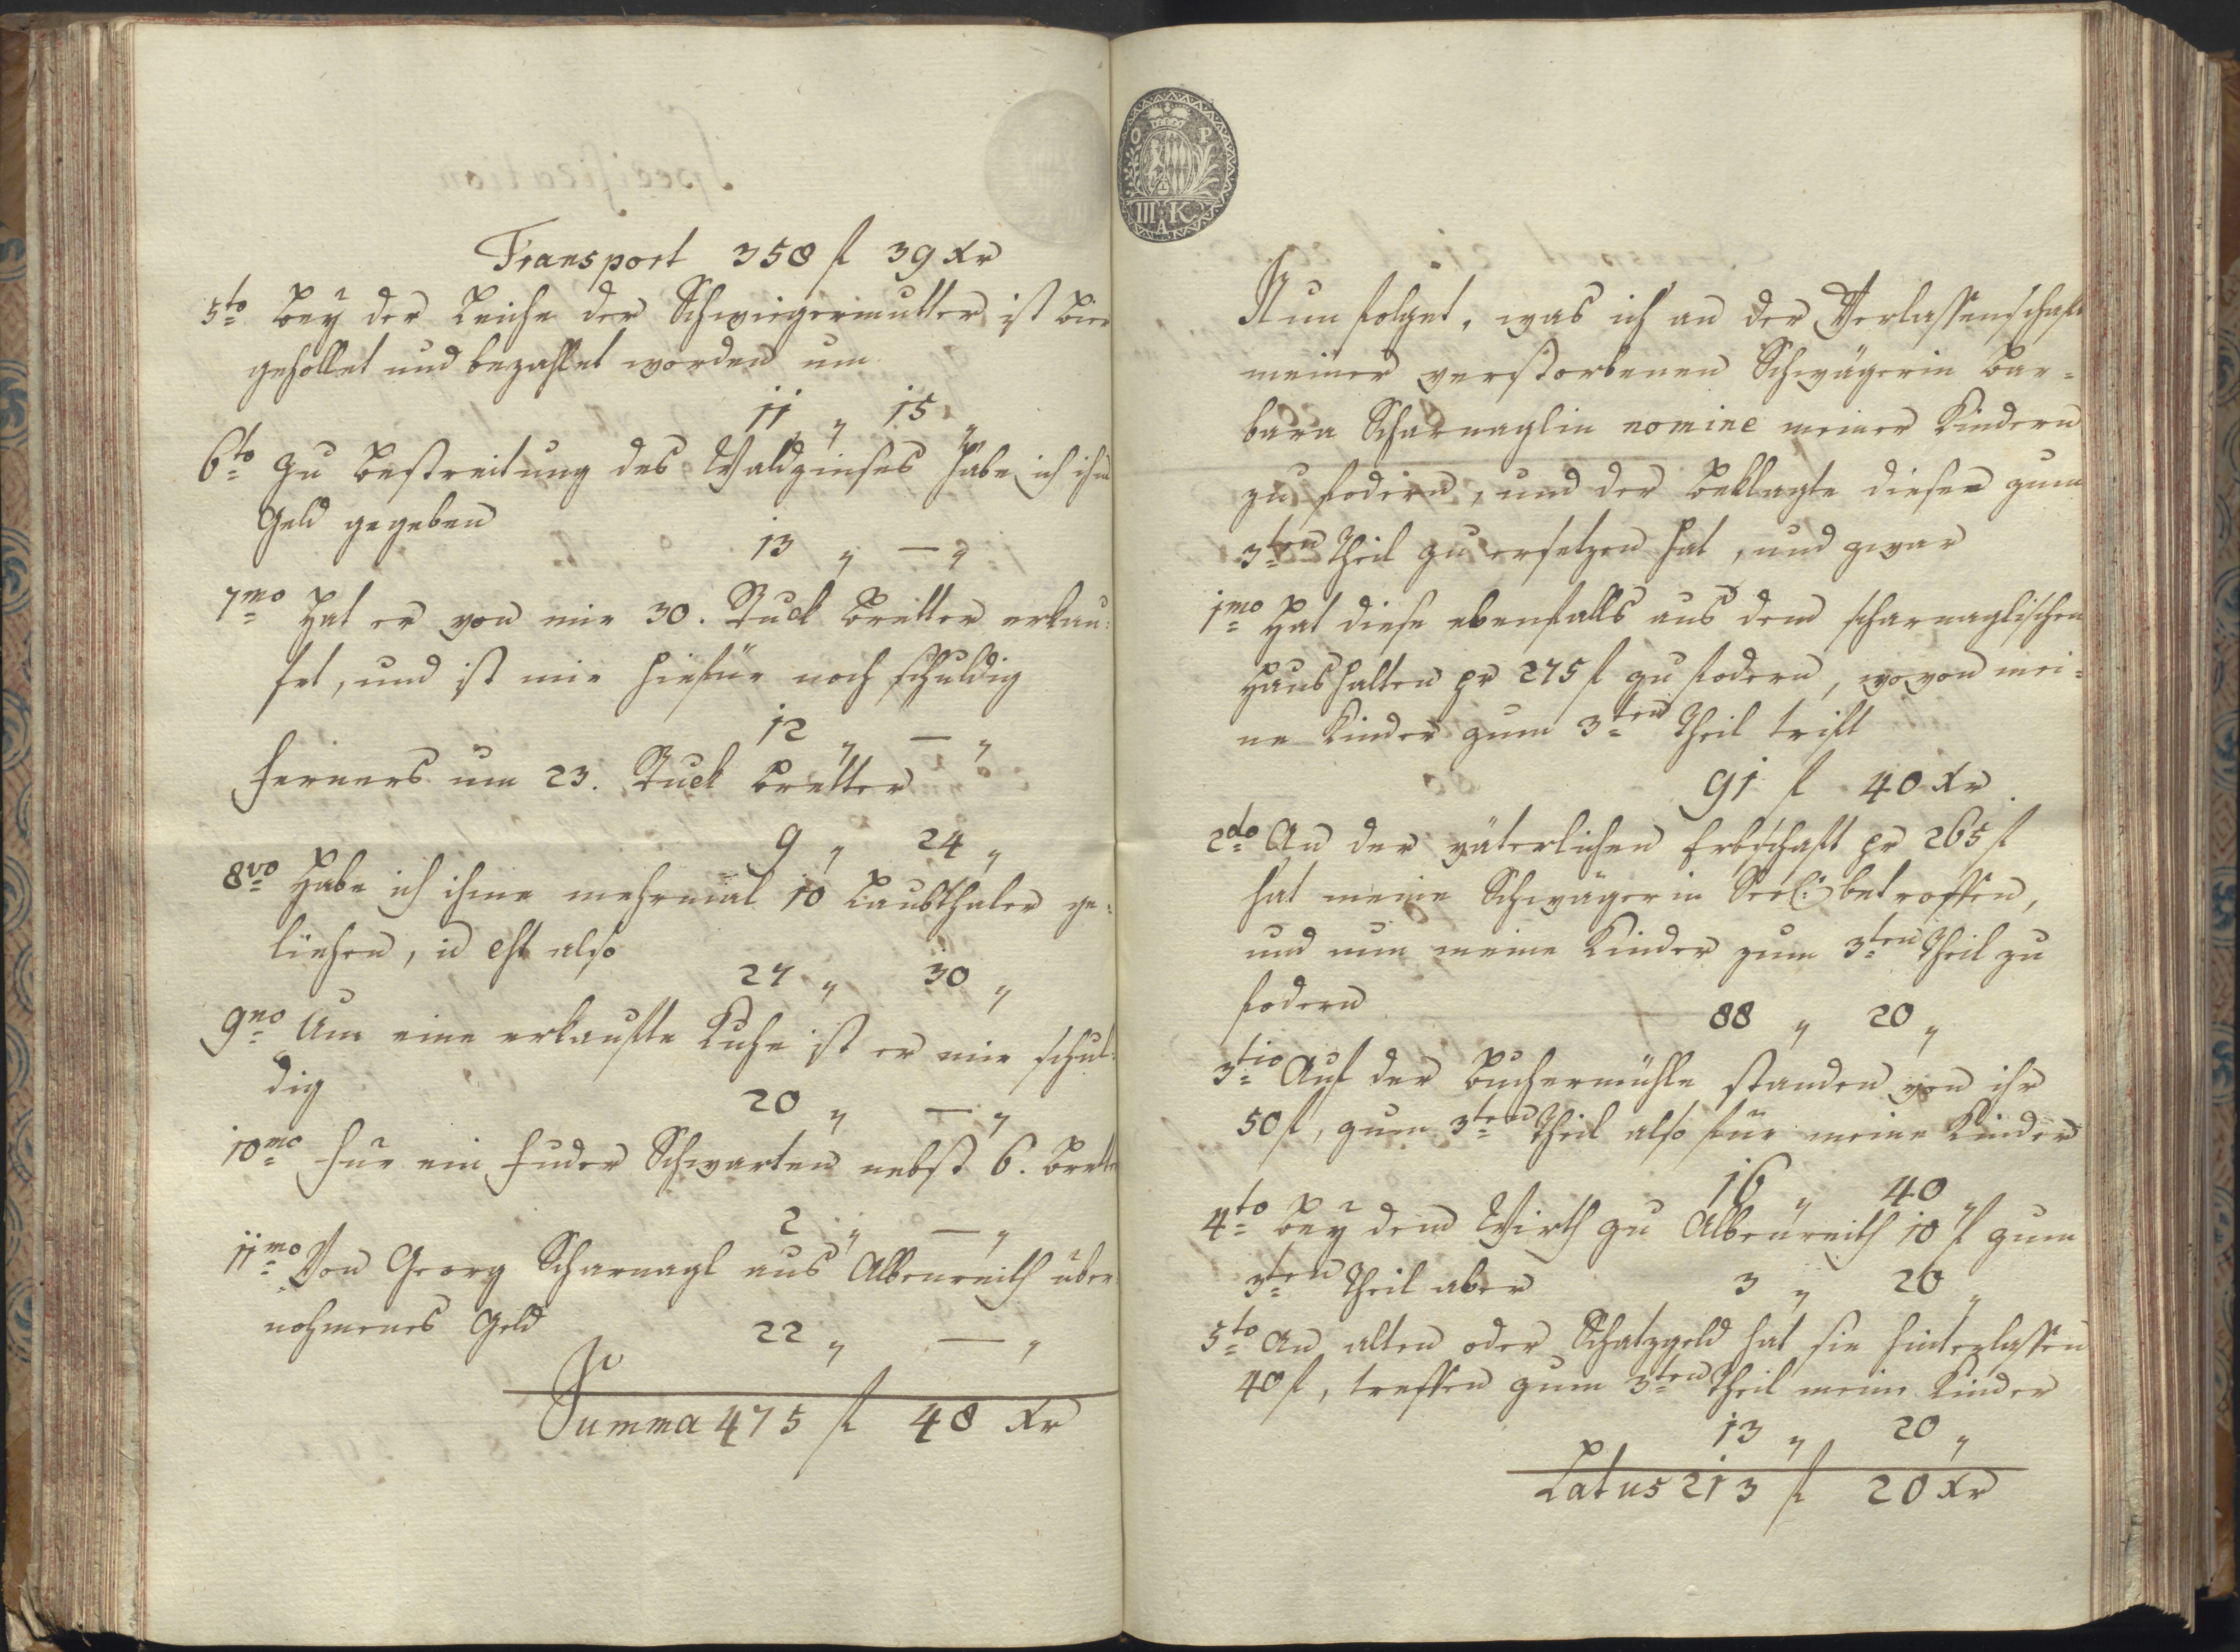 Transport 358 fl 39 Xr
5to Beÿ der Leiche der Schwiegermutter ist Bier
gehollet und bezahlet worden um
11 „ 15 „
6to Zu Bestreitung des Waldzinses habe ich ihm
Geld gegeben
13 „ — „
7mo Hat er von mir 30. Stuck Bretter erkau:
fet, und ist mir hiefür noch schuldig
12 „ — „
Ferners um 23. Stuck Bretter
9 „ 24 „
8vo Habe ich ihme mehrmal 10 Laubthaler ge:
liehen, id est also
27 „ 30 „
9no Um eine erkaufte Kuhe ist er mir schul:
dig
20 „ — „
10mo Für ein Fuder Schwarten nebst 6. Brett
2 „ — „
11mo Von Georg Scharnagl aus Albenreith über
nohmenes Geld
22 „ — „
Summa 475 fl 48 Xr
O P
III K
A
Nun folget, was ich an der Verlassenschaft
meiner verstorbenen Schwägerin Bar=
bara Scharnaglin nomine meiner Kindern
zu fodern, und der Beklagte dieser zum
3ten Theil zu ersetzen hat, und zwar
1mo Hat diese ebenfalls aus dem scharnaglischen
Haushalten pr 275 fl zu fodern, wovon mei=
ne Kinder zum 3ten Theil trift
91 fl 40 Xr
2do An der väterlichen Erbschaft pr 265 fl
hat meine Schwägerin Seel: betroffen,
und nun meine Kinder zum 3ten Theil zu
fodern
88 „ 20 „
3tio Auf der Buchermühle standen von ihr
50 fl, zum 3ten Theil also für meine Kinder
16 „ 40 „
4to Beÿ dem Wirth zu Albenreith 10 fl zum
3ten Theil aber 3 „ 20 „
5to An alten oder Schatzgeld hat sie hinterlassen
40 fl, treffen zum 3ten Theil meine Kinder
13 „ 20 „
Latus 213 fl 20 Xr